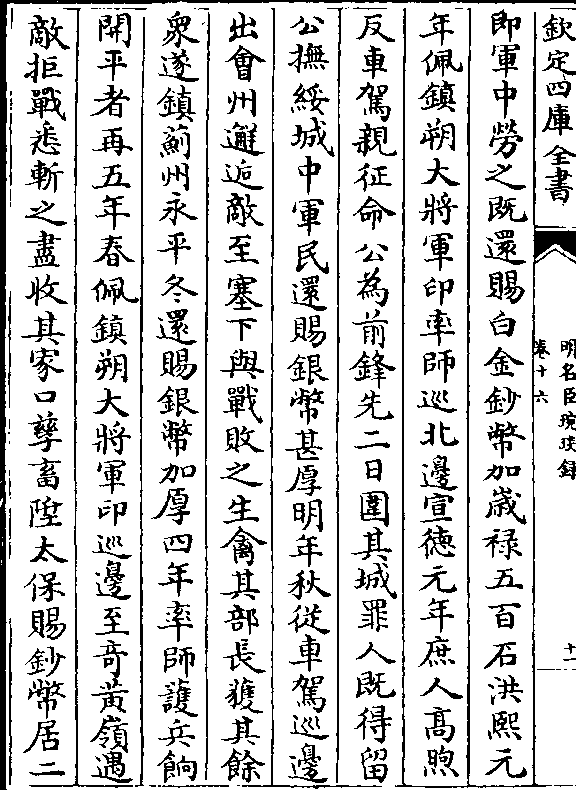 欽定四庫全書
明名臣琬琰録
卷十六
十一
即軍中勞之既還賜白金鈔幣加歳禄五百石洪熙元
年佩鎮朔大將軍印率師巡北邊宣德元年庶人高煦
反車駕親征命公為前鋒先二日圍其城罪人既得留
公撫綏城中軍民還賜銀幣甚厚明年秋從車駕巡邊
出會州邂逅敵至塞下與戰敗之生禽其部長獲其餘
衆遂鎮薊州永平冬還賜銀幣加厚四年率師護兵餉
開平者再五年春佩鎮朔大將軍印巡邊至竒黃嶺遇
敵拒戰悉斬之盡收其家口孳畜陞太保賜鈔幣居二